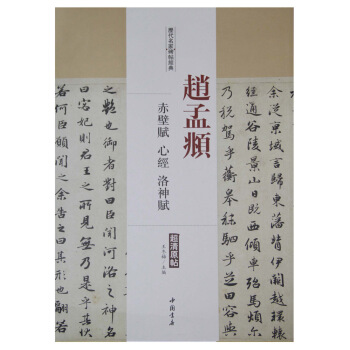 歷代名家碑帖經典
趙孟頫
赤壁賦 心經 洛神賦
超清原帖
王冬梅·主編
中國書店
余從京域言歸東藩背伊闕越轘轅
經通谷陵景山日既西傾車殆馬煩尔
乃稅駕乎蘅皋秣駟乎芝田容與
之艷也御者對曰臣聞河洛之神名
曰宓妃則君王之所見無乃是乎其狀
若何臣願聞之余告之曰其形也翩若